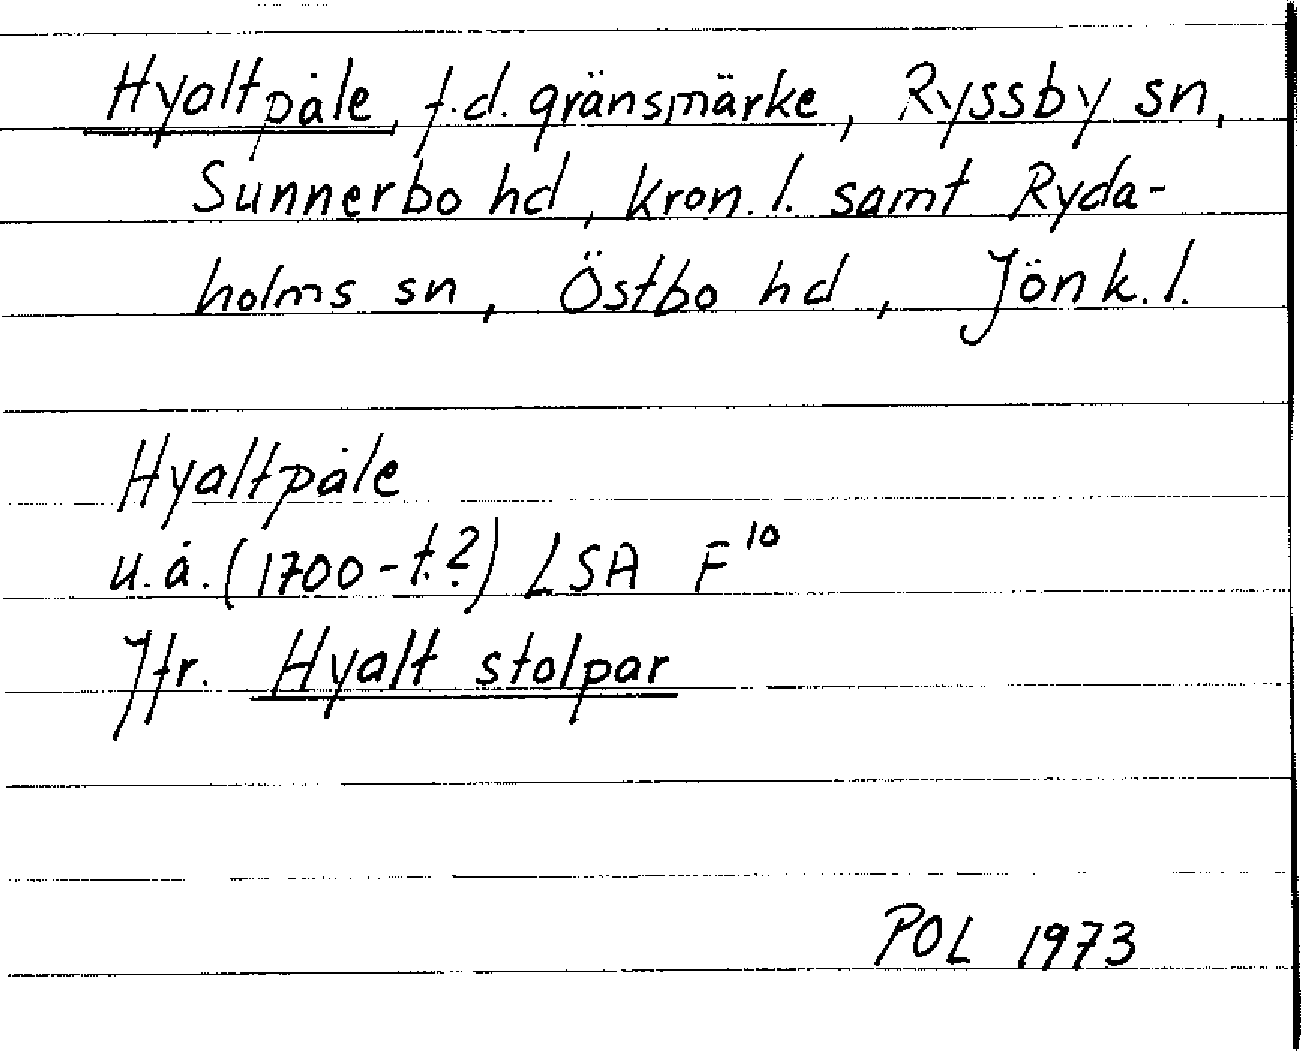 Hyaltpåle, f.d. gränsmärke, Ryssby sn,
Sunnerbo hd, Kron. l. samt Ryda-
holms sn, Östbo hd, Jönk. l.
Hyaltpåle
u.å. (1700-t.?) LSA F¹⁰
Jfr. Hyalt stolpar
POL 1973